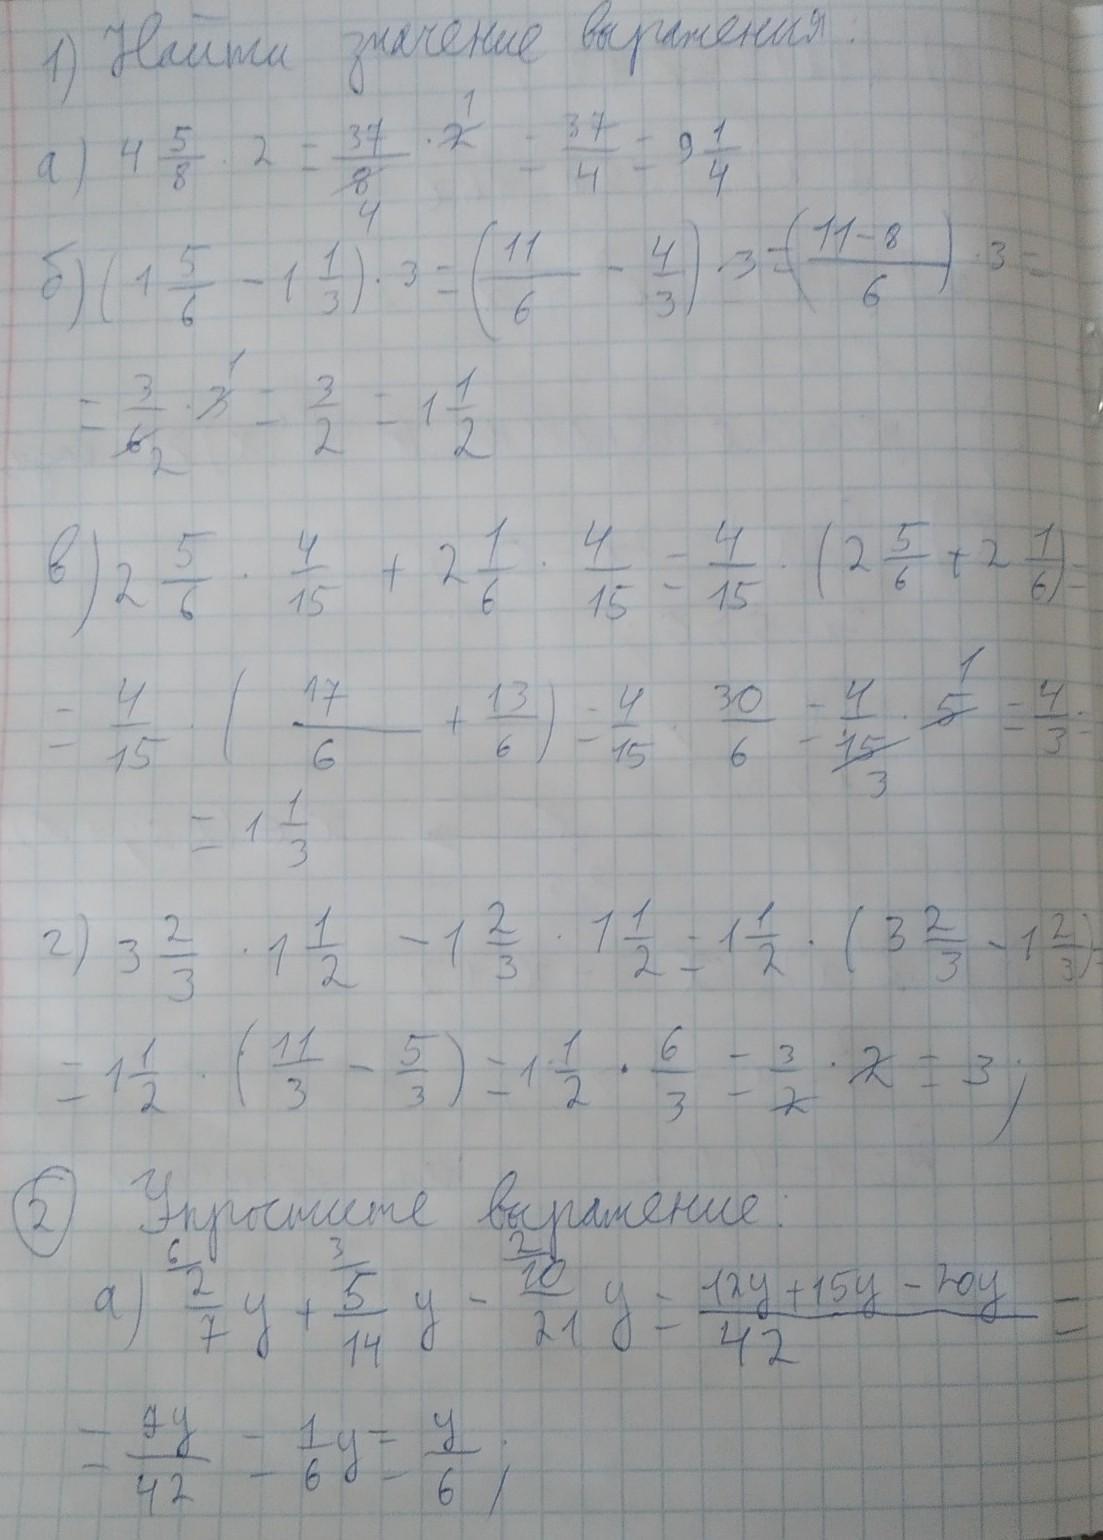 1) Найти значение выражения:
а) 4 5/8 · 2 = 37/8 4 · 2 1 = 37/4 = 9 1/4
б) (1 5/6 - 1 1/3) · 3 = (11/6 - 4/3) · 3 = (11-8/6) · 3 =
= 3/6 2 · 3 1 = 3/2 = 1 1/2
в) 2 5/6 · 4/15 + 2 1/6 · 4/15 = 4/15 · (2 5/6 + 2 1/6) =
= 4/15 · (17/6 + 13/6) = 4/15 · 30/6 = 4/15 3 · 5 1 = 4/3 =
= 1 1/3
г) 3 2/3 · 1 1/2 - 1 2/3 · 1 1/2 = 1 1/2 · (3 2/3 - 1 2/3) =
= 1 1/2 · (11/3 - 5/3) = 1 1/2 · 6/3 = 3/2 · 2 = 3;
2 Упростите выражение:
а) 6 2/7 y + 3 5/14 y - 2 10/21 y = 12y + 15y - 20y/42 =
= 7y/42 = 1/6 y = y/6;